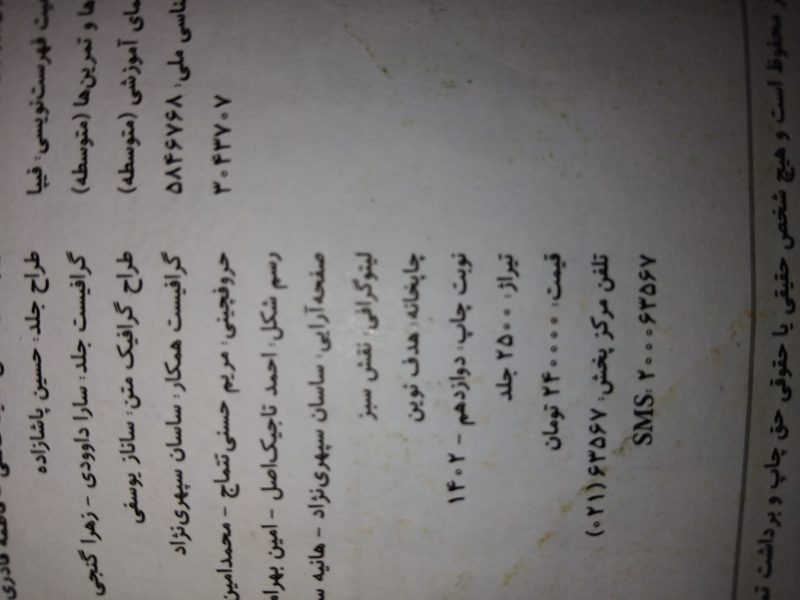 وضعیت فهرست‌نویسی: فیپا
ها و تمرین‌ها (متوسطه)
آموزشی (متوسطه)
ملی: ۵۸۴۶۷۶۸
۳۰۴۳۷۰۷
قادری
طراح جلد: حسین پاشازاده
گرافیست جلد: سارا داوودی - زهرا گنجی
طراح گرافیک متن: ساناز یوسفی
گرافیست همکار: ساسان سپهری‌نژاد
حروفچینی: مریم حسنی تتماج - محمدامین
رسم شکل: احمد تاجیک‌اصل - امین بهرام
صفحه‌آرایی: ساسان سپهری‌نژاد - هانیه
لیتوگرافی: نقش سبز
چاپخانه: هدف نوین
نوبت چاپ: دوازدهم - ۱۴۰۲
تیراژ: ۲۵۰۰ جلد
قیمت: ۲۴۰۰۰۰ تومان
تلفن مرکز پخش: ۶۳۵۶۷ (۰۲۱)
SMS: ۲۰۰۰۶۳۵۶۷
محفوظ است و هیچ شخص حقیقی یا حقوقی حق چاپ و برداشت